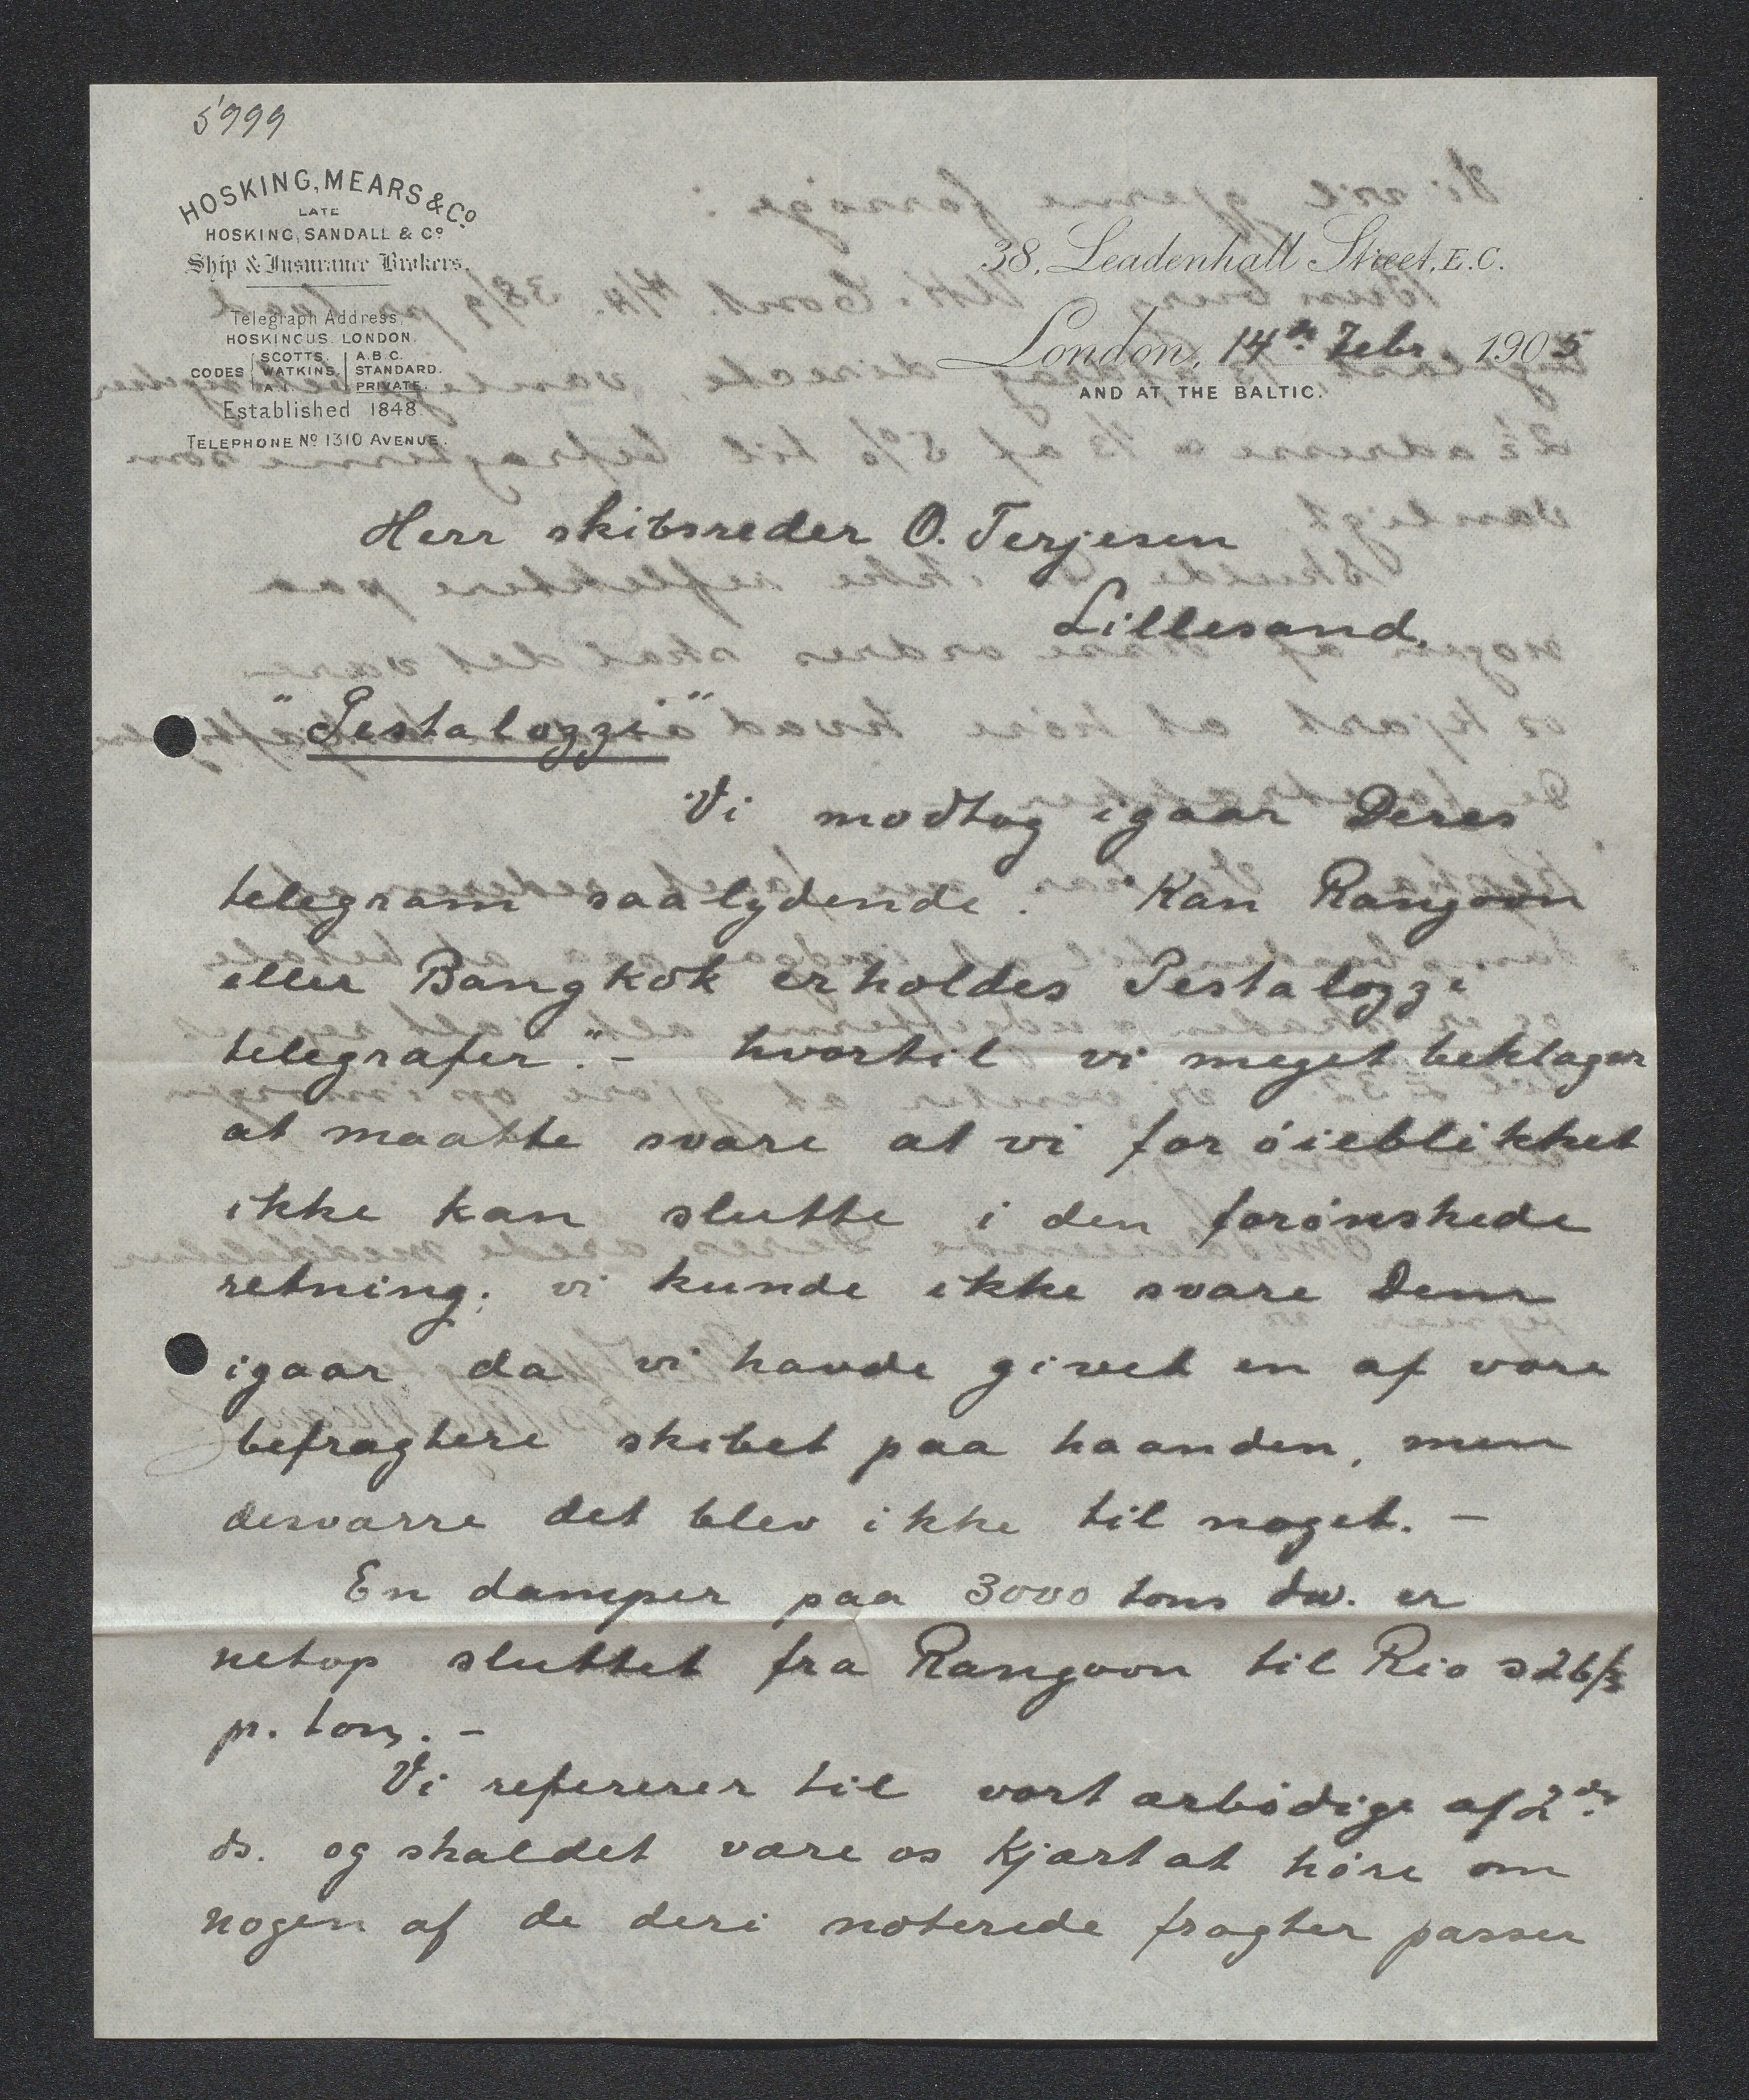 5999
HOSKING, MEARS & Co.
LATE
HOSKING, SANDALL & Co.
Ship & Insurance Brokers.
Telegraph Address,
HOSKINGUS. LONDON.
CODES SCOTTS. A.B.C.
WATKINS. STANDARD.
A.1. PRIVATE.
Established 1848.
TELEPHONE No 1310 AVENUE.
38, Leadenhall Street, E.C.
London, 14de Febr. 1905
AND AT THE BALTIC.
Herr skibsreder O. Terjesen
Lillesand.
"Pestalozzi"
Vi modtog igaar Deres
telegram saalydende: "Kan Rangoon
eller Bangkok erholdes Pestalozzi
telegrafer." - hvortil vi meget beklager
at maatte svare at vi for öieblikket
ikke kan slutte i den forönskede
retning; vi kunde ikke svare Dem
igaar da vi havde givet en af vore
befragtere skibet paa haanden, men
desværre det blev ikke til noget. -
En damper paa 3000 tons dw. er
netop sluttet fra Rangoon til Rio
p. ton. -
Vi refererer til vort ærbödige af 2de
ds. og skal det være os kjært at höre om
nogen af de deri noterede fragter passer